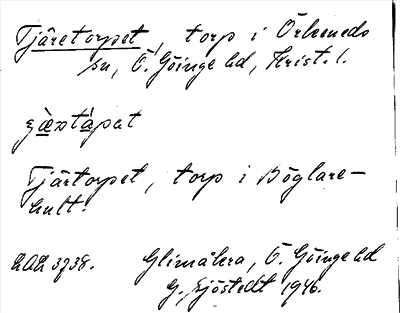 Tjäretorpet, torp i Örkeneds
sn, Ö. Göinge hd, Krist. l.
Tjärtorpet, torp i Böglare-
hult.
LAL 3738. Glimåkra, Ö. Göinge hd
G. Sjöstedt 1946.